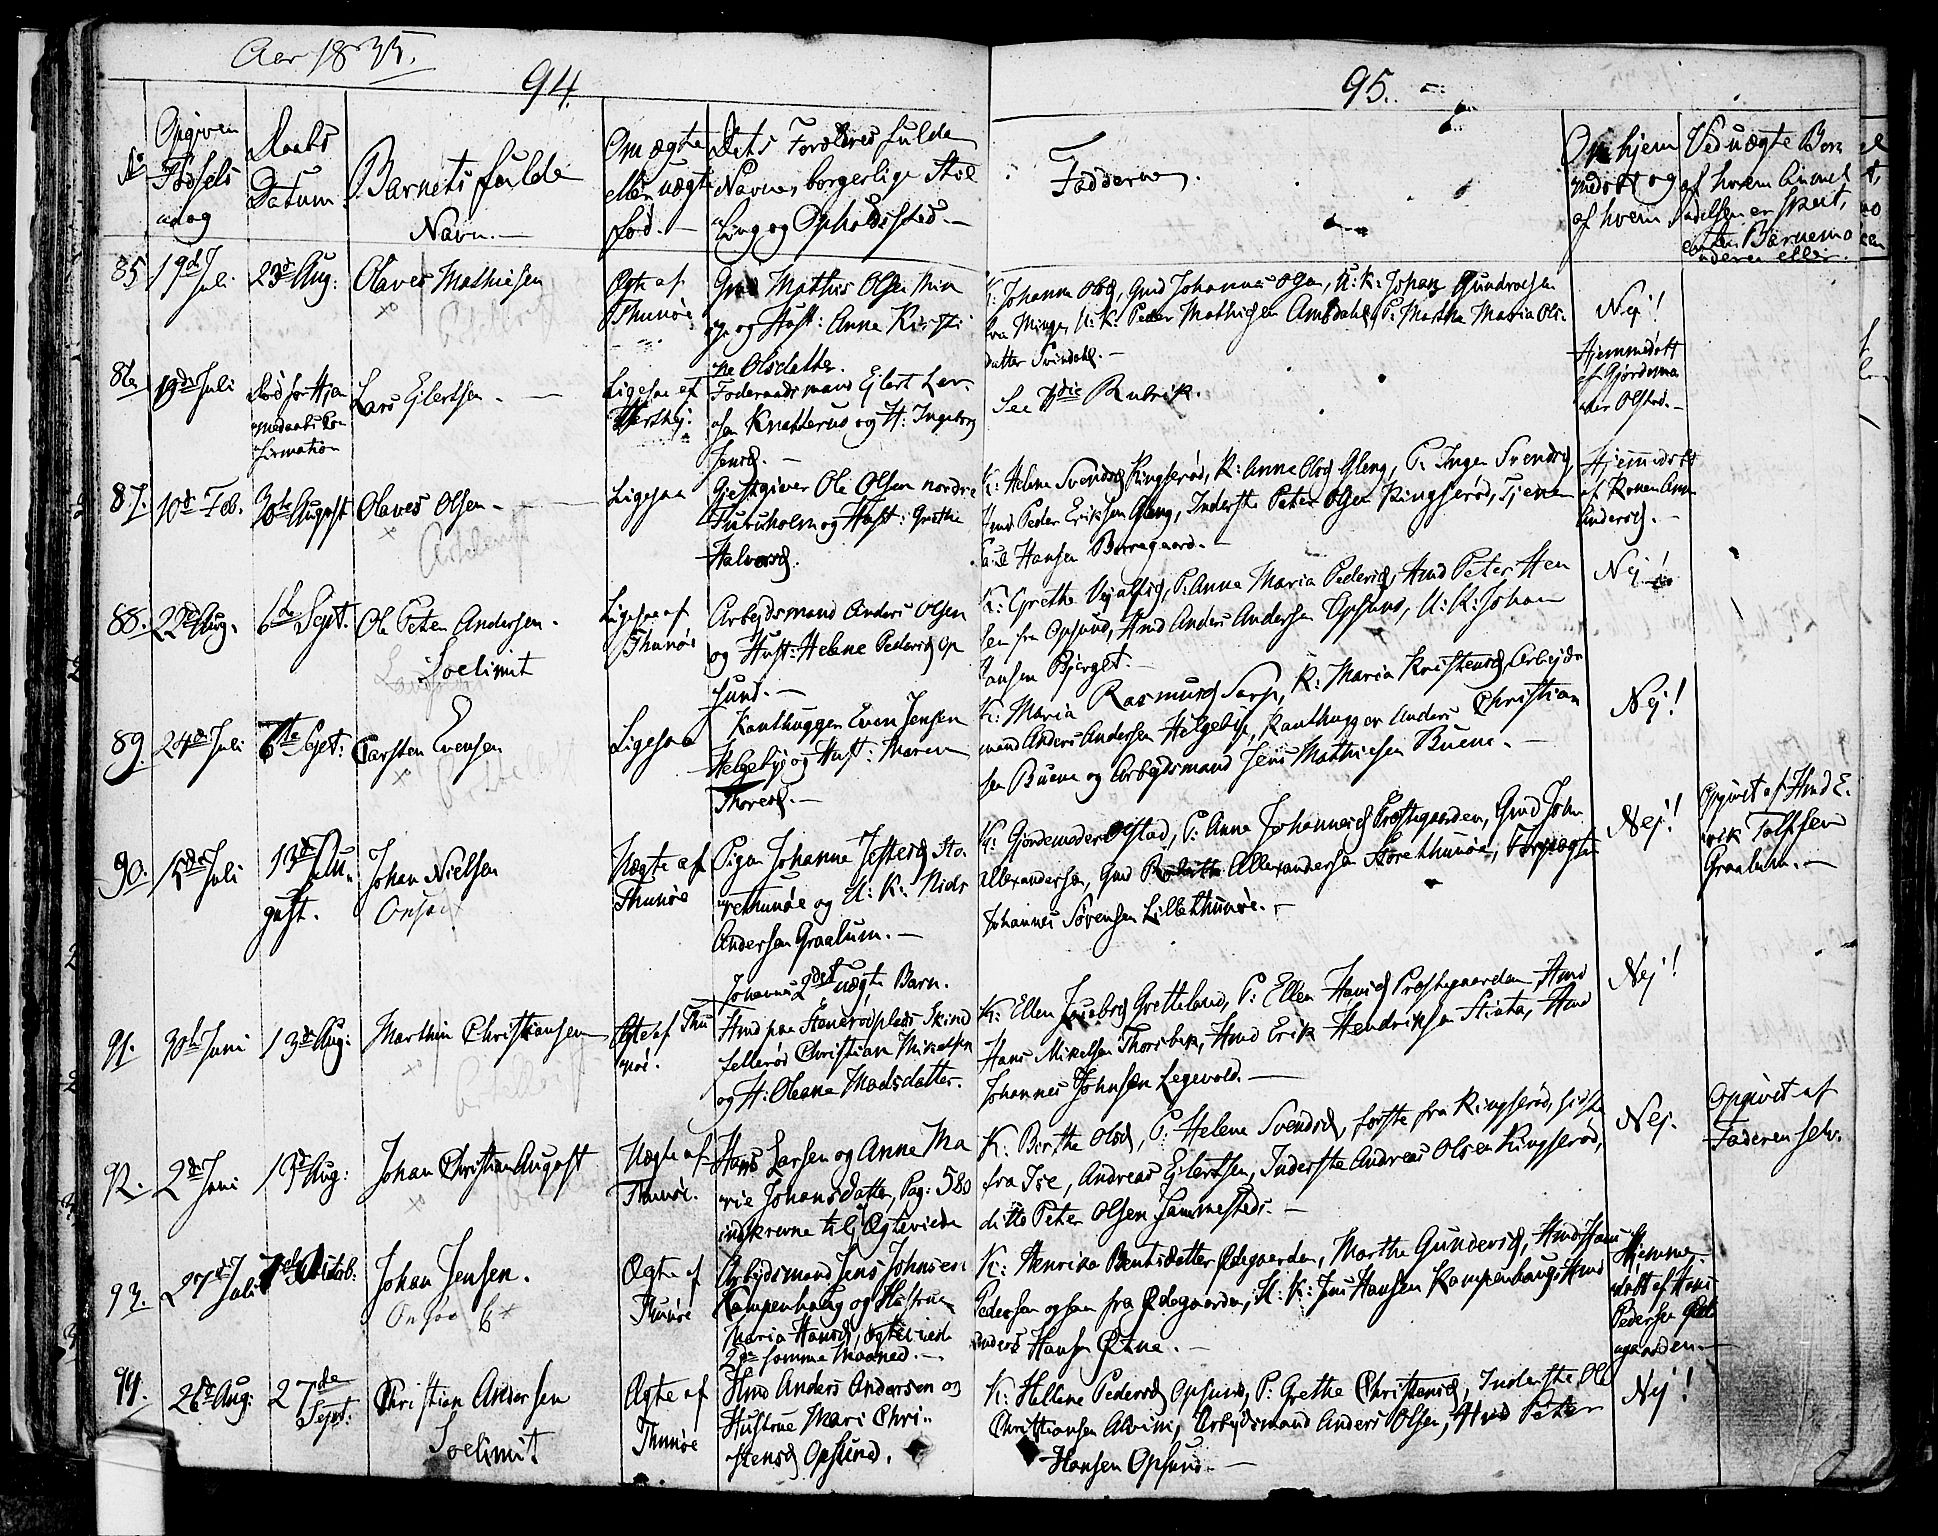 Aar 1835.
94.
95.
No
Opgiven
Fødsels
dag
Daabs
Datum.
Barnets fulde
Navn. —
Om ægte
eller uægte
fød. —
Dets Forældres fulde
Navne, borgerlige Stil
ling og Opholdssted. —
Faddernes.
Om hjem
medøbt og
af hvem
Ved uægte Børn
af hvem
er skeet,
enten Barnemo
deren eller
85
19d Juli
23d Aug:
Olaves Mathiesen
Ægte af
Thunøe
Gmd Mathis Olsen Min
ge og Hust: Anne Kirsti
ne Olsdatter.
K: Johanne Olsd, Gmd Johannes Olsen, U: K: Johan Gundersen
fra Minge, U: K: Peder Mathisen Amsdahl, P: Martha Maria Ols
datter Svindahl. —
Nej!
86
19de Juli
Død før Hjem
medaabs Con
firmation
Lars Ejlertsen. —
Ligesaa af
Foderaadsmand Ejlert Lar
sen Knatterud og H: Ingeborg
Jensd. —
See Rubrik.
Hjemmedøbt
af Gjordemo
der Olstad. —
87.
10d Feb.
30te August
Olaves Olsen. —
Ligesaa
Gjestgiver Ole Olsen nordre
Furuholm og Hust: Grethe
Halvorsd.
K: Helene Svendsd Ringserød, K: Anne Olsd Gleng, P: Inger Svendsd,
Hmd Peder Eriksen Gleng, Inderste Peter Olsen Ringserød, Tjener
Hansen Borregaard. —
Hjemmedøbt
af Konen Ann
Andersd. —
88.
22d Aug.
6te Sept.
Ole Peter Andersen.
Soelimit
Ligesaa af
Thunøe
Arbejdsmand Anders Olsen
og Hust: Helene Pedersd Op
sund. —
K: Grethe P: Anne Maria Pedersd, Hmd Peter Han
sen fra Opsund, Hmd Anders Andersen Opsund, U: K: Johan
Hansen Bjerget. —
Nej!
89.
24de Juli
6te Sept:
Carsten Evensen
Ligesaa
Kanthugger Even Jensen
Helgebye og Hust: Maren
Thoresd. —
K: Maria Rasmusd Sarp, K: Maria Kristensd, Arbejds
mand Anders Andersen Helgebye, Kanthugger Anders Christian
sen Buene og Arbejdsmand Jens Mathiesen Buene. —
Nej!
90.
15de Juli
13d Au
gust.
Johan Nielsen
Onsøe
Uægte af
Thunøe
Pige Johanne Sto
rethunøe og U: K: Niels
Andersen Graalum. —
Johannes 2det uægte Barn.
K: Gjordemoder Olstad, P: Anne Johannesd Præstegaarden, Gmd John
Allexandersen, Gmd Allexandersen Storethunøe,
Johannes Sørensen Lillethunøe. —
Nej!
Opgivet af Hmd E
rik Tolfsen
Graalum. —
91.
30te Juni
13d Aug:
Marthin Christiansen
Ægte af Thu
nøe.
Hmd paa Stenerødplads Skind
fellerød Christian Mikelsen
og H: Oleane Madsdatter.
K: Ellen Jacobsd Gretteland, P: Ellen Hansd Præstegaarden, Hmd
Hans Mikelsen Thorsbek, Hmd Erik Hendriksen Hmd
Johannes Johnsen Legevold. —
Nej!
92.
2de Juni
13d Aug:
Johan Christian August
Uægte af
Thunøe.
Hans Larsen og Anne Ma
rie Johansdatter, Pag: 580
indskrevne til Ægtevielse
K: Birthe Olsd, P: Helene Svendsd, første fra Ringserød, sidste
fra Ise, Andreas Ejlertsen, Inderste Andreas Olsen Ringserød,
ditto Peter Olsen sammesteds. —
Nej.
Opgivet af
Faderen selv.
93.
27de Juli
Octob:
Johan Jensen.
Onsøe
Ægte af
Thunøe
Arbejdsmand Jens Johnsen
Kampenhaug og Hustrue
Maria Hansd, ægteviede
samme Maaned. —
K: Henrika Bentsdatter Ødegaarden, Marthe Gundersd, Hmd Hans
Pedersen ogsaa fra Ødegaarden, U: K: Jens Hansen Kampenhaug, Hmd
Anders Hansen Ætne. —
Hjemme
døbt af Hans
Pedersen Øde
gaarden. —
94.
26d Aug:
27de
Sept:
Christian Andersen
Soelimit
Ægte af
Thunøe
Hmd Anders Andersen og
Hustrue Mari Chri
stensd Opsund.
K: Hellene Pedersd Opsund, P: Grethe Christensd, Inderste Ole
Christiansen Alvim, Arbejdsmand Anders Olsen, Hmd Peter
Hansen Opsund. —
Nej!